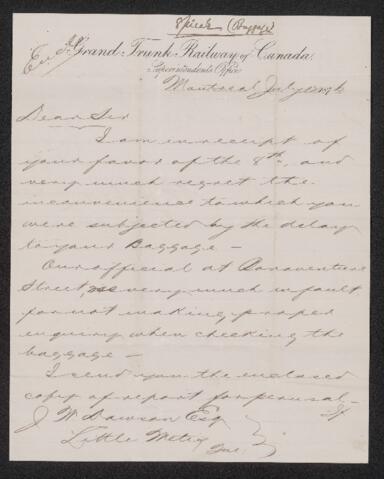 (Baggage)
Grand Trunk Railway of Canada.
Superintendent's Office
Montreal July
Dear Sir
I am in receipt of
your favor of the 8th, and
very much regret the
inconvenience to which you
were subjected by the delay
to your Baggage —
Our official at Bonaventure
Street, was very much in fault
for not making proper
enquiry when checking the
baggage —
I send you the enclosed
copy of report for perusal —
J W Dawson Esq
Little Metis
Que.